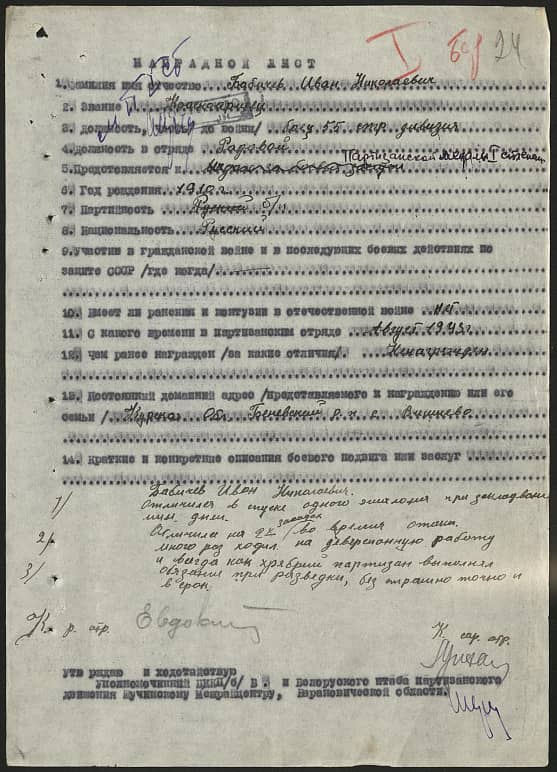 24
НАГРАДНОЙ ЛИСТ
1. Фамилия имя отчество Бабичев Иван Николаевич
2. Звание
3. Должность до войны/ боец 55 стр. дивизия
4. должность в отряде Рядовой
5. Представляется к Партизанской медали I степени
6. Год рождения 1910 г.
7. Партийность б/п
8. Национальность Русский
9. Участие в гражданской войне и в последующих боевых действиях по
защите СССР /где когда/
10. Имеет ли ранения и контузии в отечественной войне нет
11. С какого времени в партизанском отряде Август 1943 г.
12. Чем ранее награжден /за какие отличия/. Ненагражден
13. Постоянный домашний адрес /представляемого к награждению или его
семьи/ Обл. р-н с.
14. Краткие и конкретные описания боевого подвига или заслуг
Бабичев Иван Николаевич.
1/ Отличился в спуске одного эшалона при закладван
мин днем.
2/ на 2х засадах во время атаки.
много раз ходил на диверсионную работу
3/ и всегда как храбрый партизан выполнял
обязание при разведки, без страшно точно и
К. р. отр. К отр.
утверждаю и ходотайствую
Уполномоченный ЦК КП/б/ Б. и Белоруского штаба партизанского
движения Мучинскому Межрайцентру, Барановической области.